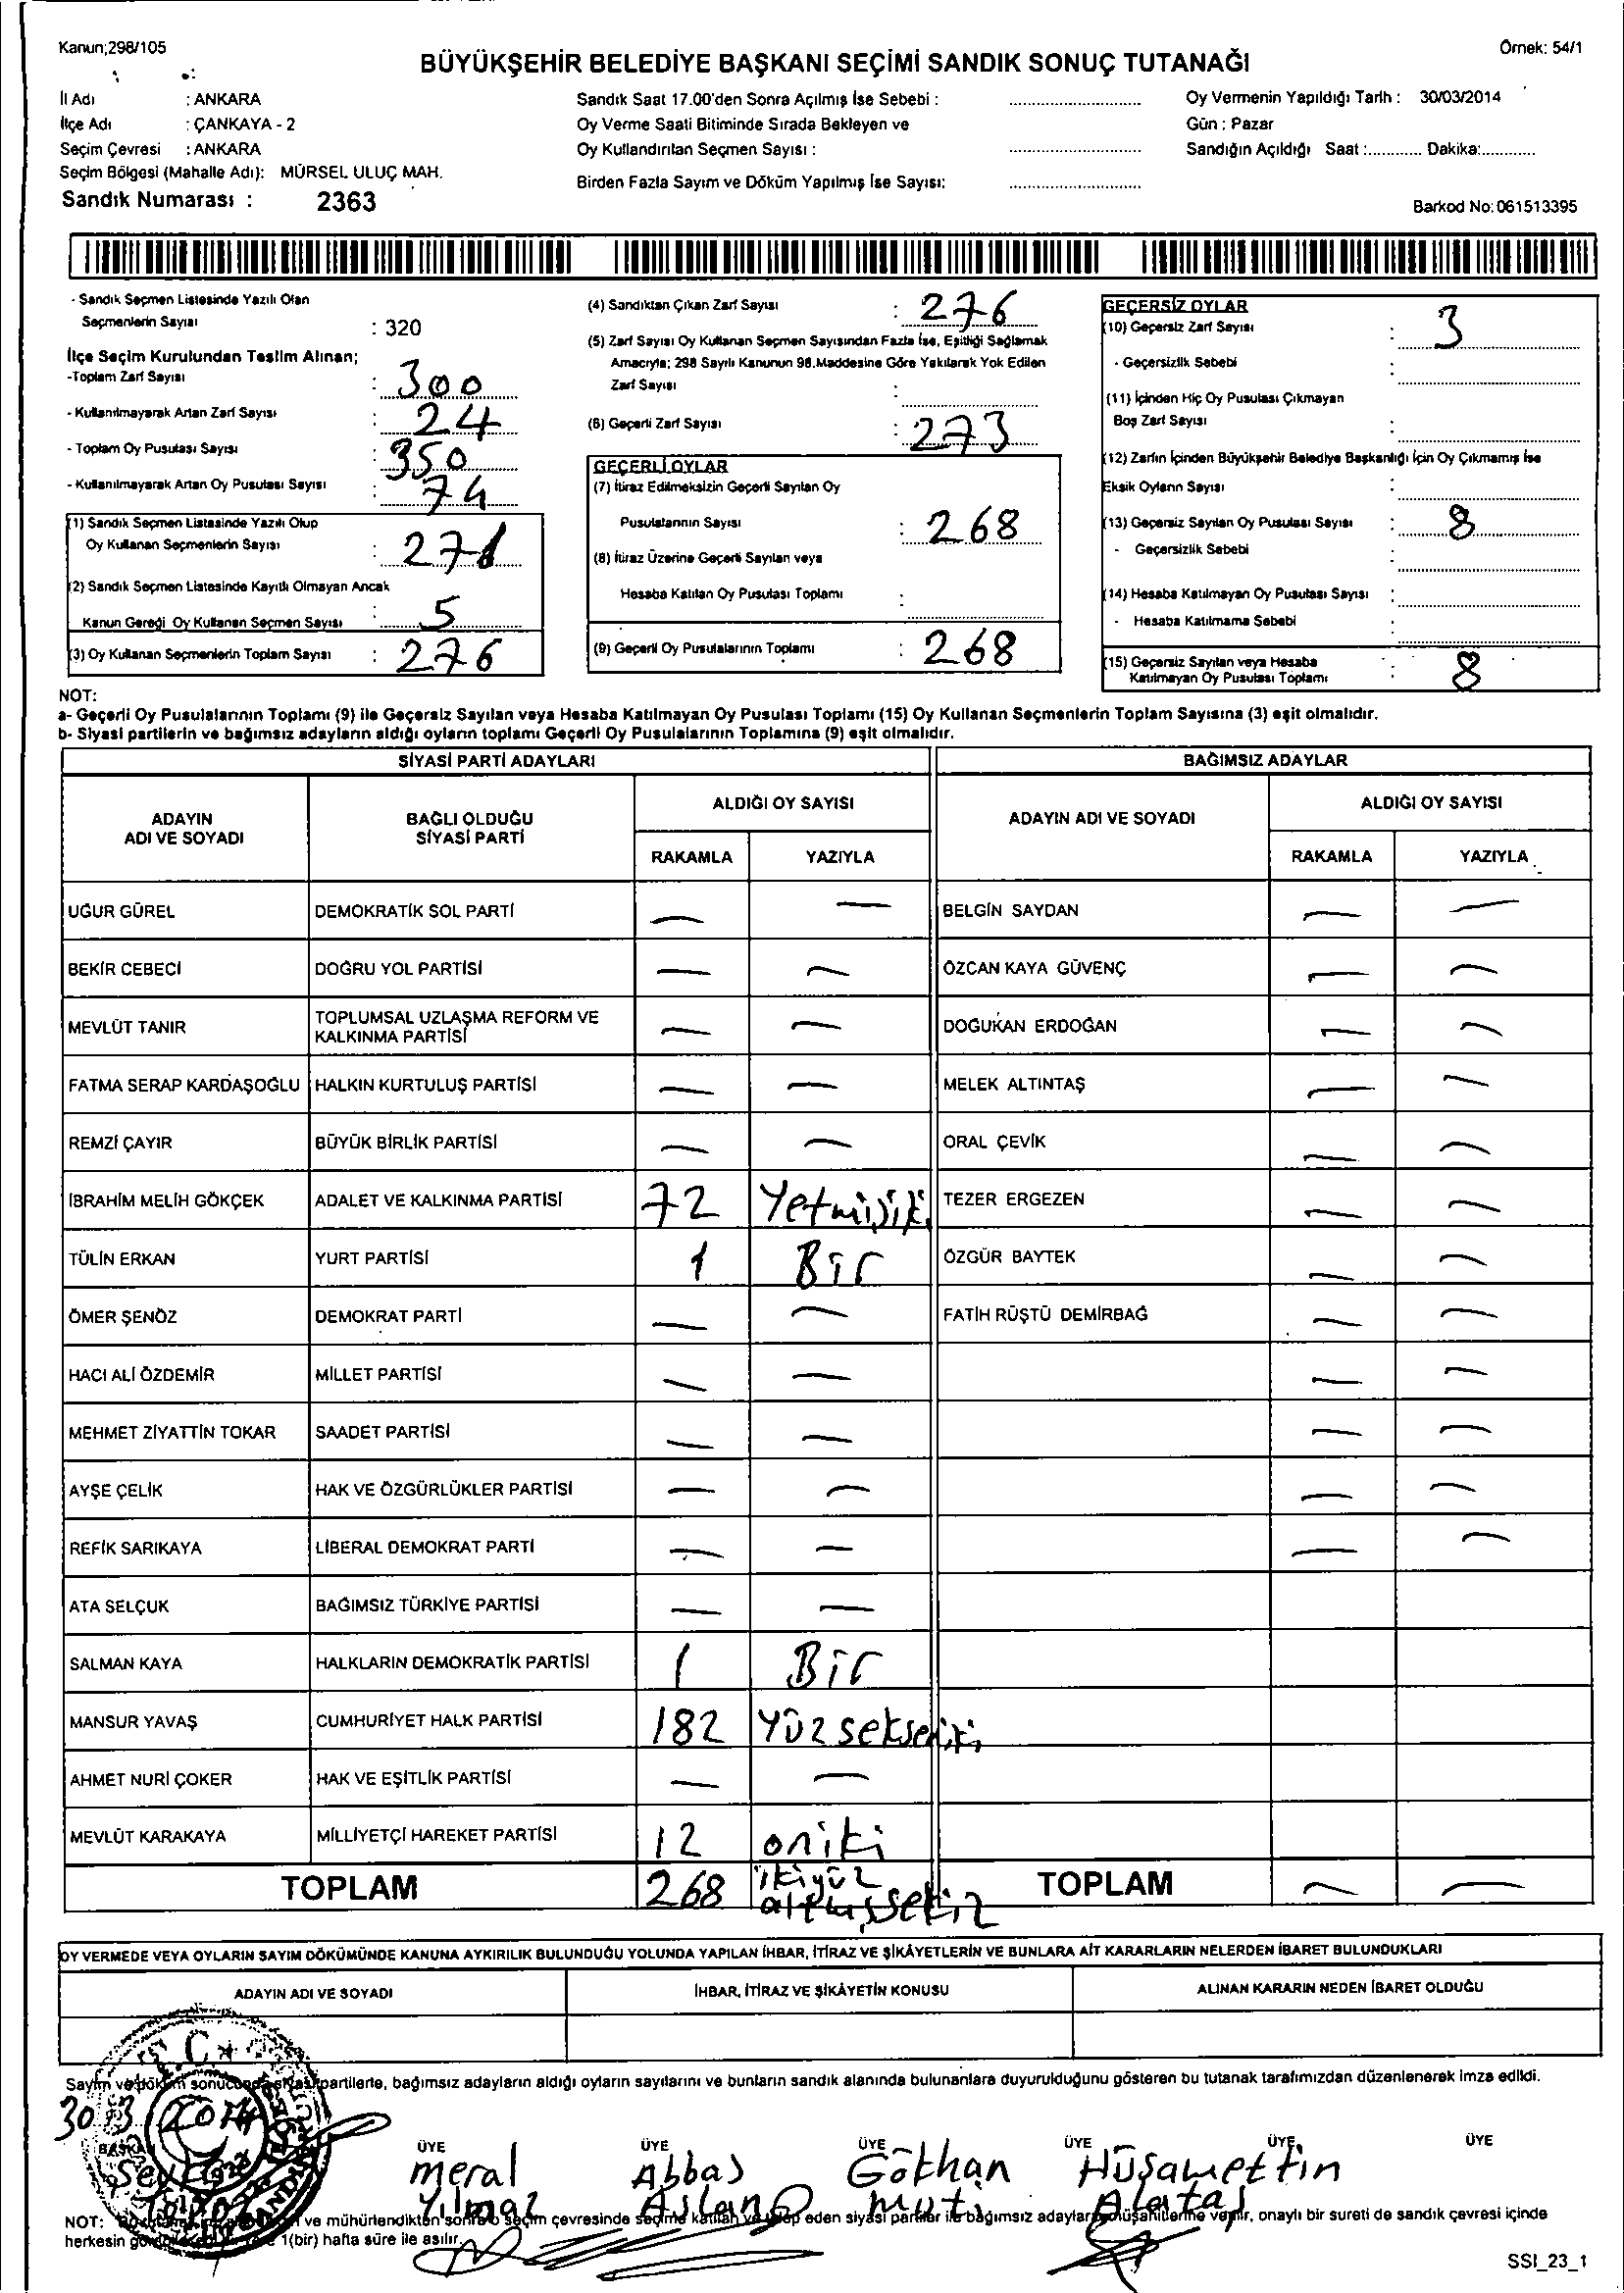 Kanun;298/105
Örnek: 54/1
BÜYÜKŞEHİR BELEDİYE BAŞKANI SEÇİMİ SANDIK SONUÇ TUTANAĞI
İl Adı : ANKARA
İlçe Adı : ÇANKAYA - 2
Seçim Çevresi : ANKARA
Seçim Bölgesi (Mahalle Adı): MÜRSEL ULUÇ MAH.
Sandık Numarası : 2363
Sandık Saat 17.00'den Sonra Açılmış İse Sebebi :
Oy Verme Saati Bitiminde Sırada Bekleyen ve
Oy Kullandırılan Seçmen Sayısı :
Birden Fazla Sayım ve Döküm Yapılmış İse Sayısı:
Oy Vermenin Yapıldığı Tarih : 30/03/2014
Gün : Pazar
Sandığın Açıldığı Saat :............ Dakika:............
Barkod No: 061513395
- Sandık Seçmen Listesinde Yazılı Olan
Seçmenlerin Sayısı : 320
İlçe Seçim Kurulundan Teslim Alınan;
-Toplam Zarf Sayısı : 300
- Kullanılmayarak Artan Zarf Sayısı : 24
- Toplam Oy Pusulası Sayısı : 350
- Kullanılmayarak Artan Oy Pusulası Sayısı : 74
(1) Sandık Seçmen Listesinde Yazılı Olup
Oy Kullanan Seçmenlerin Sayısı : 271
(2) Sandık Seçmen Listesinde Kayıtlı Olmayan Ancak
Kanun Gereği Oy Kullanan Seçmen Sayısı : 5
(3) Oy Kullanan Seçmenlerin Toplam Sayısı : 276
(4) Sandıktan Çıkan Zarf Sayısı : 276
(5) Zarf Sayısı Oy Kullanan Seçmen Sayısından Fazla İse, Eşitliği Sağlamak
Amacıyla; 298 Sayılı Kanunun 98.Maddesine Göre Yakılarak Yok Edilen
Zarf Sayısı :
(6) Geçerli Zarf Sayısı : 273
GEÇERLİ OYLAR
(7) İtiraz Edilmeksizin Geçerli Sayılan Oy
Pusulalarının Sayısı : 268
(8) İtiraz Üzerine Geçerli Sayılan veya
Hesaba Katılan Oy Pusulası Toplamı :
(9) Geçerli Oy Pusulalarının Toplamı : 268
GEÇERSİZ OYLAR
(10) Geçersiz Zarf Sayısı : 3
- Geçersizlik Sebebi :
(11) İçinden Hiç Oy Pusulası Çıkmayan
Boş Zarf Sayısı :
(12) Zarfın İçinden Büyükşehir Belediye Başkanlığı İçin Oy Çıkmamış İse
Eksik Oyların Sayısı :
(13) Geçersiz Sayılan Oy Pusulası Sayısı : 8
- Geçersizlik Sebebi :
(14) Hesaba Katılmayan Oy Pusulası Sayısı :
- Hesaba Katılmama Sebebi :
(15) Geçersiz Sayılan veya Hesaba
Katılmayan Oy Pusulası Toplamı : 8
NOT:
a- Geçerli Oy Pusulalarının Toplamı (9) ile Geçersiz Sayılan veya Hesaba Katılmayan Oy Pusulası Toplamı (15) Oy Kullanan Seçmenlerin Toplam Sayısına (3) eşit olmalıdır.
b- Siyasi partilerin ve bağımsız adayların aldığı oyların toplamı Geçerli Oy Pusulalarının Toplamına (9) eşit olmalıdır.
SİYASİ PARTİ ADAYLARI
BAĞIMSIZ ADAYLAR
ADAYIN
ADI VE SOYADI
BAĞLI OLDUĞU
SİYASİ PARTİ
ALDIĞI OY SAYISI
RAKAMLA YAZIYLA
ADAYIN ADI VE SOYADI
ALDIĞI OY SAYISI
RAKAMLA YAZIYLA
UĞUR GÜREL DEMOKRATİK SOL PARTİ — — BELGİN SAYDAN — —
BEKİR CEBECİ DOĞRU YOL PARTİSİ — — ÖZCAN KAYA GÜVENÇ — —
MEVLÜT TANIR TOPLUMSAL UZLAŞMA REFORM VE
KALKINMA PARTİSİ — — DOĞUKAN ERDOĞAN — —
FATMA SERAP KARDAŞOĞLU HALKIN KURTULUŞ PARTİSİ — — MELEK ALTINTAŞ — —
REMZİ ÇAYIR BÜYÜK BİRLİK PARTİSİ — — ORAL ÇEVİK — —
İBRAHİM MELİH GÖKÇEK ADALET VE KALKINMA PARTİSİ 72 Yetmişiki TEZER ERGEZEN — —
TÜLİN ERKAN YURT PARTİSİ 1 Bir ÖZGÜR BAYTEK — —
ÖMER ŞENÖZ DEMOKRAT PARTİ — — FATİH RÜŞTÜ DEMİRBAĞ — —
HACI ALİ ÖZDEMİR MİLLET PARTİSİ — — — —
MEHMET ZİYATTİN TOKAR SAADET PARTİSİ — — — —
AYŞE ÇELİK HAK VE ÖZGÜRLÜKLER PARTİSİ — — — —
REFİK SARIKAYA LİBERAL DEMOKRAT PARTİ — — — —
ATA SELÇUK BAĞIMSIZ TÜRKİYE PARTİSİ — —
SALMAN KAYA HALKLARIN DEMOKRATİK PARTİSİ 1 Bir
MANSUR YAVAŞ CUMHURİYET HALK PARTİSİ 182 Yüzsekseniki
AHMET NURİ ÇOKER HAK VE EŞİTLİK PARTİSİ — —
MEVLÜT KARAKAYA MİLLİYETÇİ HAREKET PARTİSİ 12 oniki
TOPLAM 268 ikiyüz
altmışsekiz TOPLAM — —
OY VERMEDE VEYA OYLARIN SAYIM DÖKÜMÜNDE KANUNA AYKIRILIK BULUNDUĞU YOLUNDA YAPILAN İHBAR, İTİRAZ VE ŞİKÂYETLERİN VE BUNLARA AİT KARARLARIN NELERDEN İBARET BULUNDUKLARI
ADAYIN ADI VE SOYADI İHBAR, İTİRAZ VE ŞİKÂYETİN KONUSU ALINAN KARARIN NEDEN İBARET OLDUĞU
Sayım ve döküm sonucunda siyasi partilerle, bağımsız adayların aldığı oyların sayılarını ve bunların sandık alanında bulunanlara duyurulduğunu gösteren bu tutanak tarafımızdan düzenlenerek imza edildi.
BAŞKAN ÜYE ÜYE ÜYE ÜYE ÜYE ÜYE
meral Abbas Gökhan Hüsamettin
Yılmaz Aslan Mutı Alataş
NOT: ve mühürlendikten sonra o seçim çevresinde seçime katılan ve eden siyasi partiler ile bağımsız adayların müşahitlerine verilir, onaylı bir sureti de sandık çevresi içinde
herkesin 1(bir) hafta süre ile asılır.
SSI_23_1